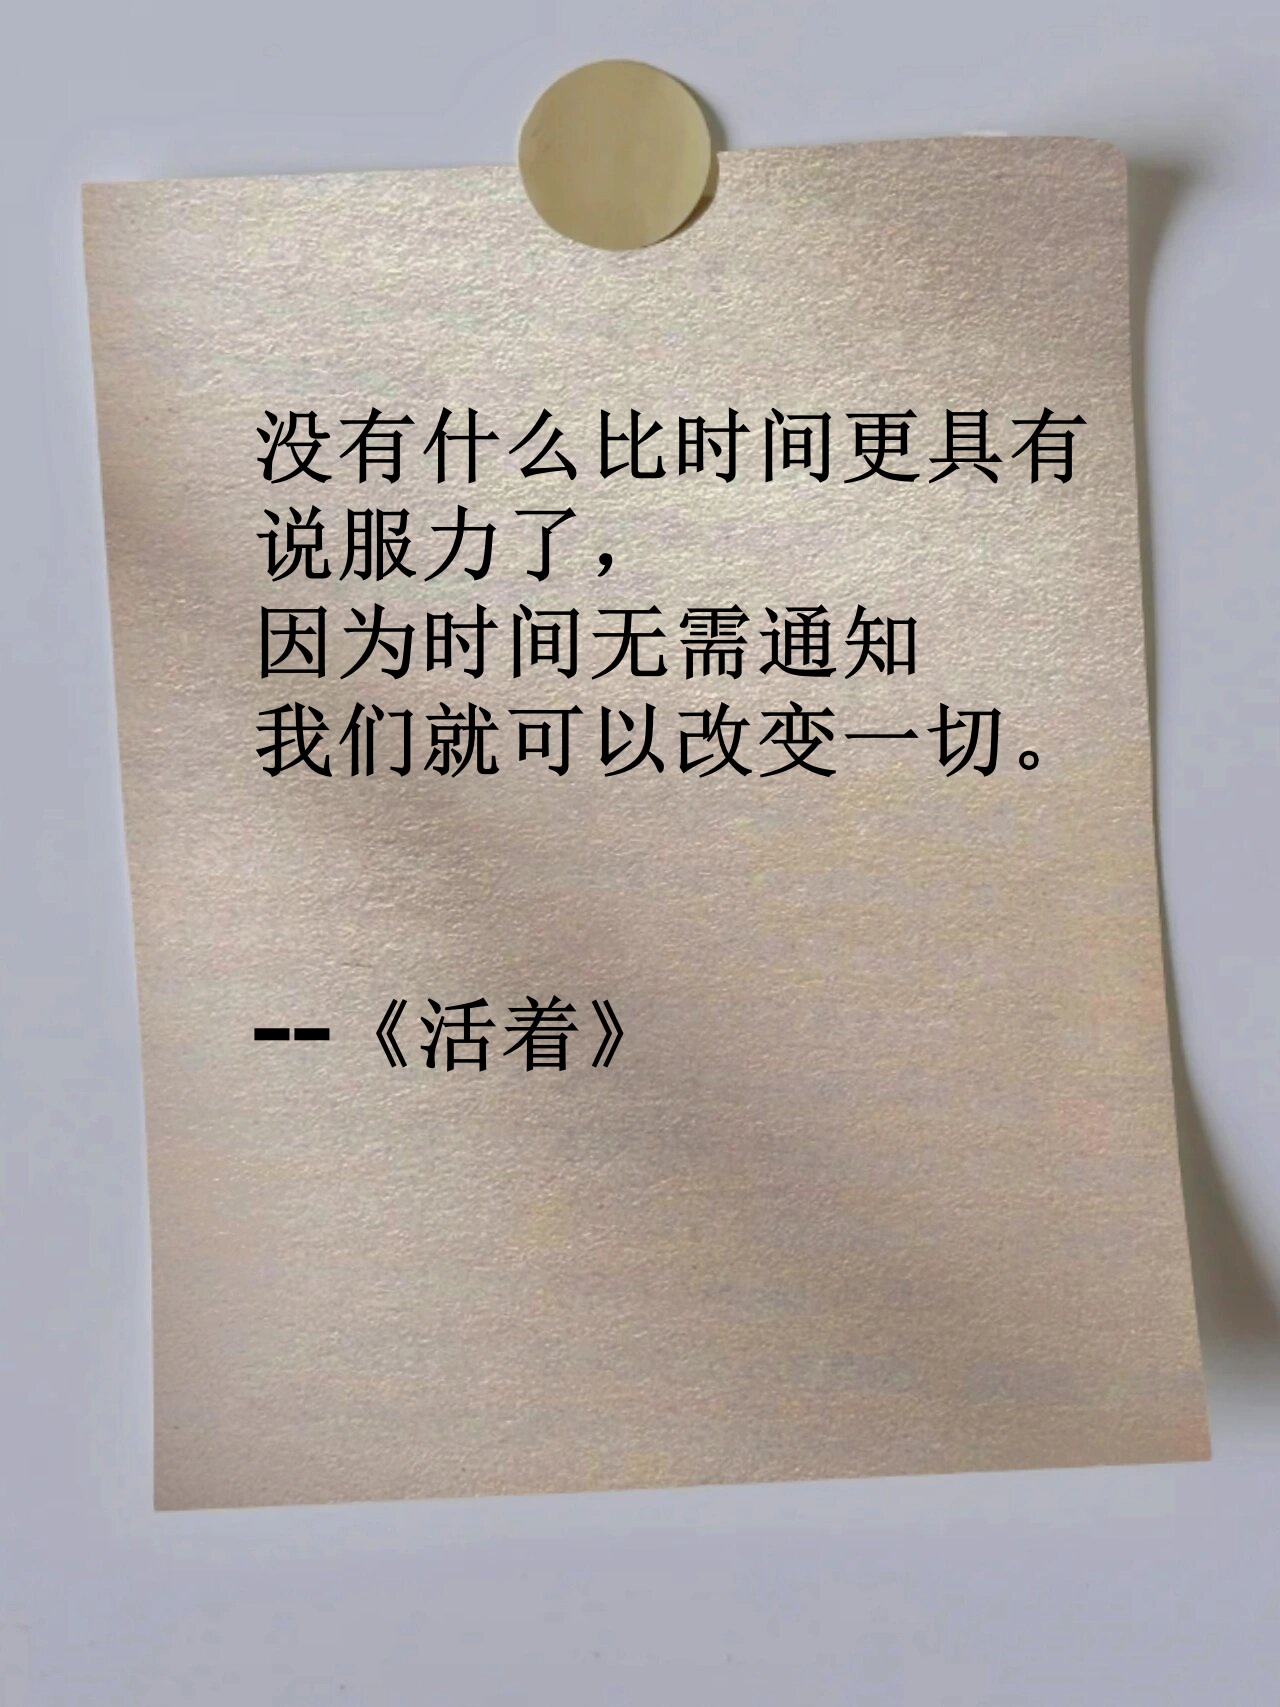 没有什么比时间更具有
说服力了，
因为时间无需通知
我们就可以改变一切。
--《活着》